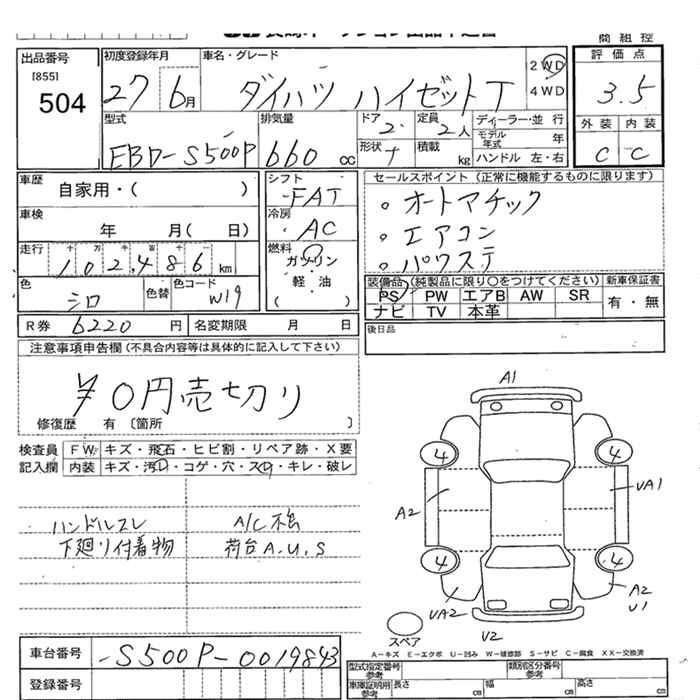 商組控
出品番号
[855]
504
初度登録年月
27 6月
車名・グレード
ダイハツ ハイゼットT
2WD
4WD
評価点
3.5
外装 内装
C C
型式
EBD-S500P
排気量
660 cc
ドア
2
定員
2人
形状
積載
kg
ディーラー・並行
モデル年式 年
ハンドル 左・右
車歴
自家用・( )
車検
年 月( 日)
走行
十 万 千 百 十 一
102,486 km
色
シロ
色替
色コード
W19
シフト
FAT
冷房
AC
燃料
ガソリン
・
軽油
( )
セールスポイント (正常に機能するものに限ります)
。オートマチック
。エアコン
。パワステ
装備品 (純製品に限り〇をつけてください)
新車保証書
PS PW エアB AW SR
ナビ TV 本革
有・無
R券 6220 円
名変期限 月 日
後日品
注意事項申告欄 (不具合内容等は具体的に記入して下さい)
¥0円売切り
修復歴 有 〔箇所 〕
検査員
記入欄
FW キズ・飛石・ヒビ割・リペア跡・X要
内装 キズ・汚レ・コゲ・穴・スレ・キレ・破レ
ハンドルスレ
下廻り付着物
荷台A.U.S
A1
4 4
A2
UA1
4 4
UA2
A2
U1
スペア
V2
A-キズ E-エクボ U-凹み W-補修跡 S-サビ C-腐食 XX-交換済
車台番号
-S500P-0019843
登録番号
型式指定番号
参考
類別区分番号
参考
車庫証明用
参考
長さ cm
幅 cm
高さ cm